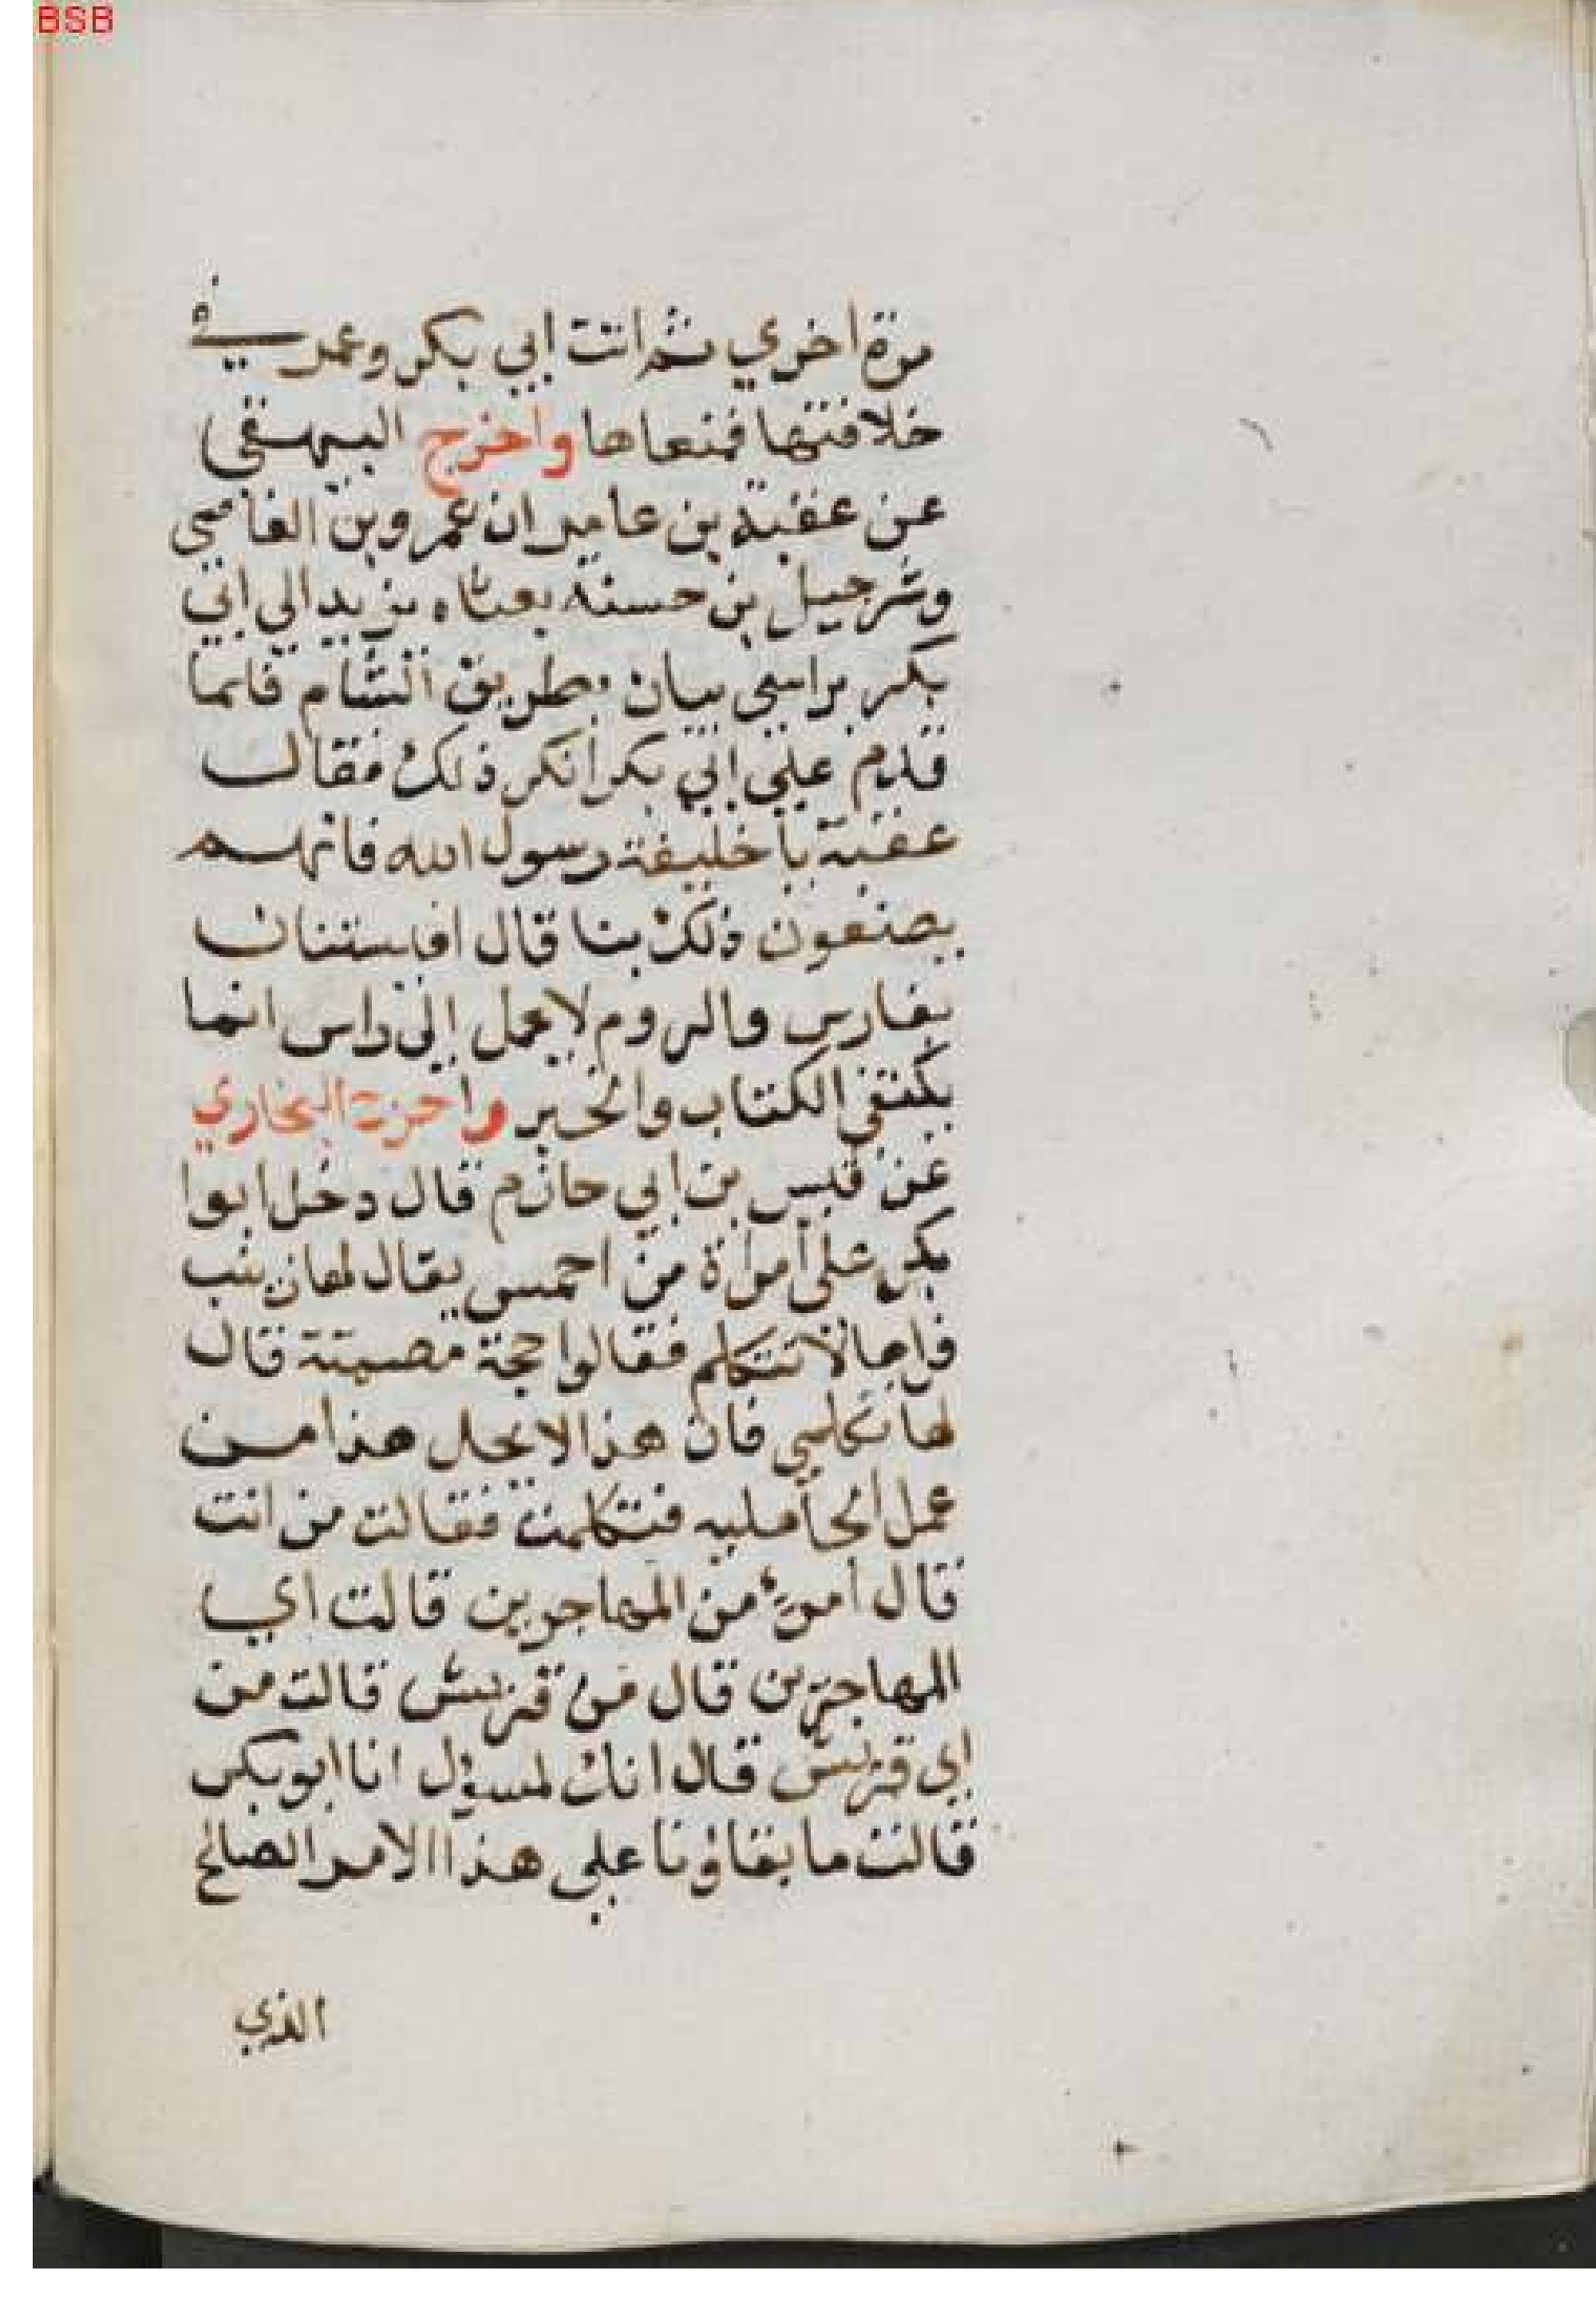 BSB
مرة اخري ثم اتت ابي بكر وعمر في
خلافتها فمنعاها واخرج البيهقي
عن عقبة بن عامر ان عمرو بن العاصي
وشرجيل بن حسنة بعثاه بزيد الي ابي
بكر براسي بيان بطريق الشام فلما
قدم علي ابي بكر انكر ذلك فقال
عقبة يا خليفة رسول الله فانهم
يصنعون ذلك بنا قال افيستنان
بفارس والروم لا يحمل الي راس انما
يكتفي الكتاب والخبر واخرج البخاري
عن قيس بن ابي حازم قال دخل ابوا
بكر علي امراة من احمس يقال لها زينب
فراها لا تتكلم فقالوا حجة مصمتة قال
لها تكلمي فان هذا لا يحل هذا من
عمل الجاهليه فتكلمت فقالت من انت
قال امرؤ من المهاجرين قالت اي
المهاجرين قال من قريش قالت من
اي قريش قال انك لمسؤل انا ابو بكر
قالت ما بقاؤنا علي هذا الامر الصالح
الذي